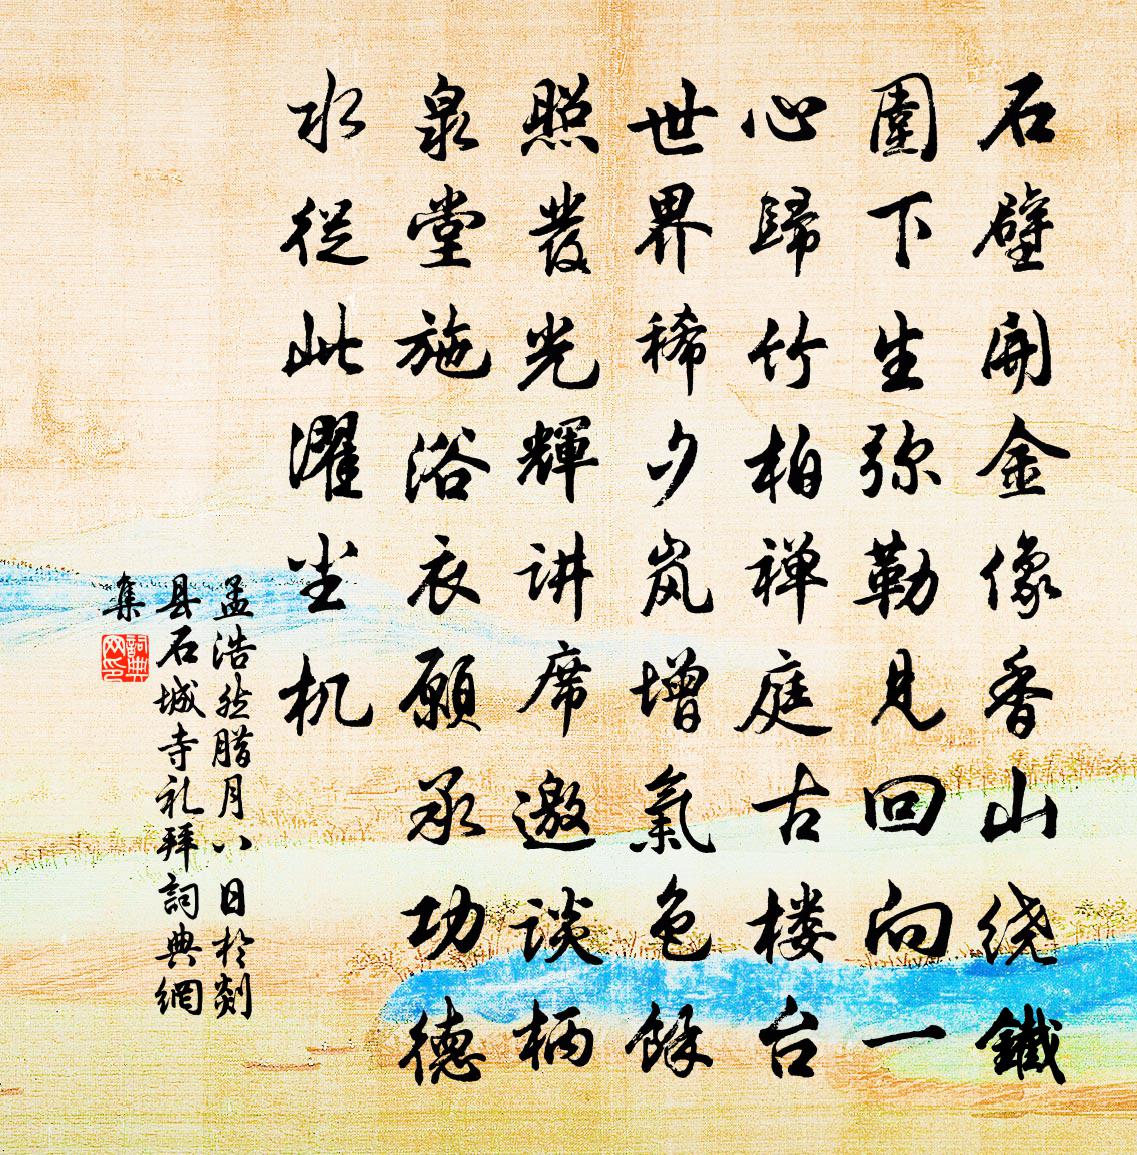 石壁開金像香山绕鐵
圍下生弥勒見回向一
心歸竹柏禅庭古楼台
世界稀夕岚增氣色餘
照發光輝讲席邀谈柄
泉堂施浴衣願承功德
水從此濯尘机
孟浩然腊月八日於剡
县石城寺礼拜詞典網
集
詞典网印